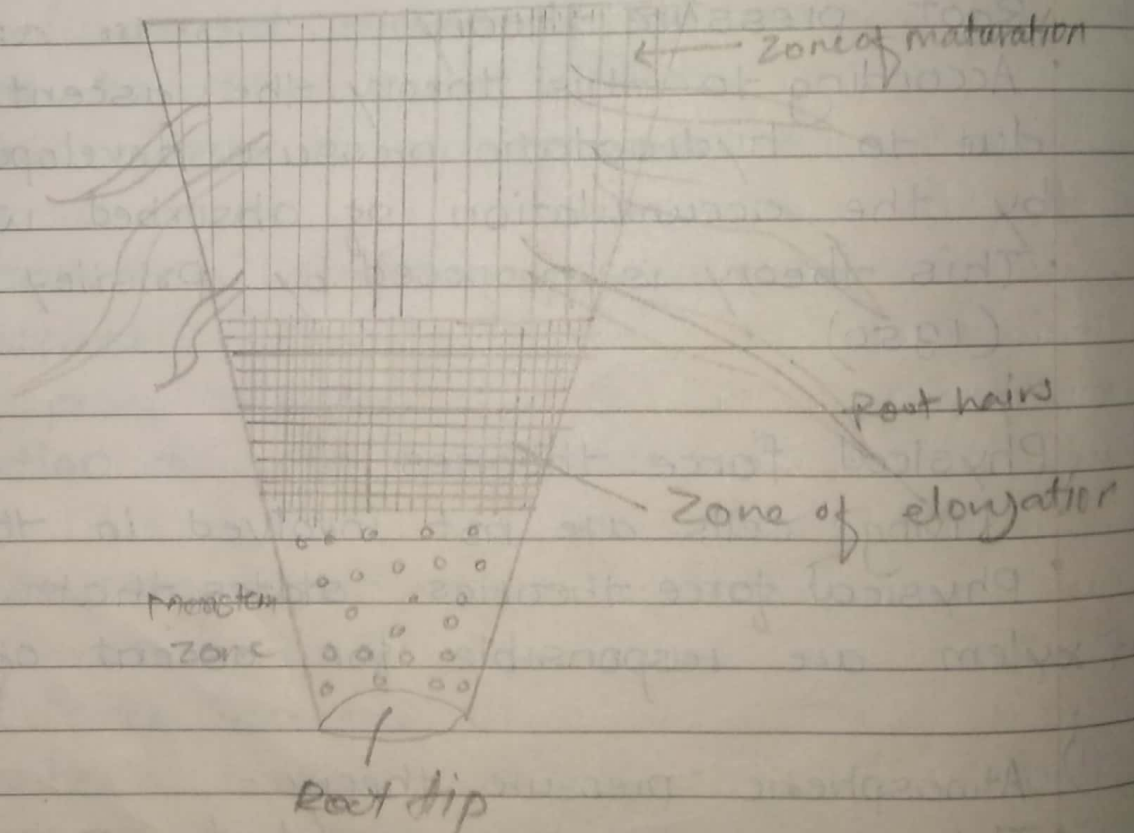 Zone of maturation
Root hairs
Zone of elongation
Meristem
zone
Root tip